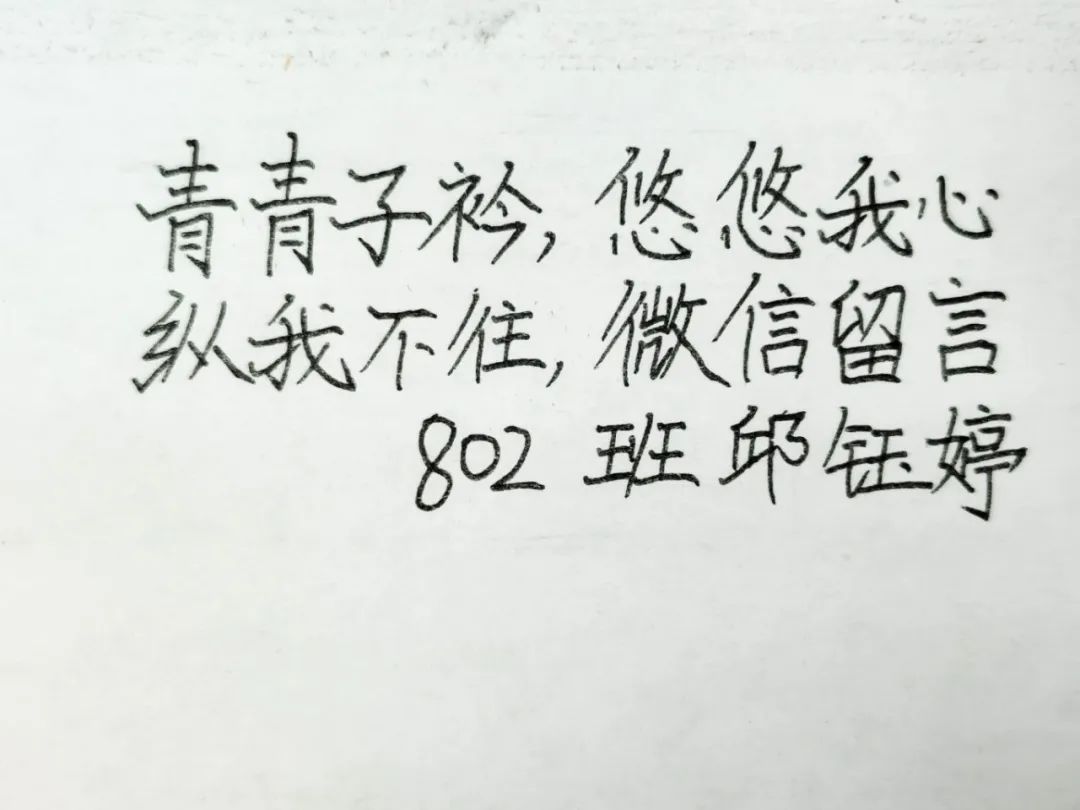 青青子衿,悠悠我心
纵我不往,微信留言
802 班邱钰婷